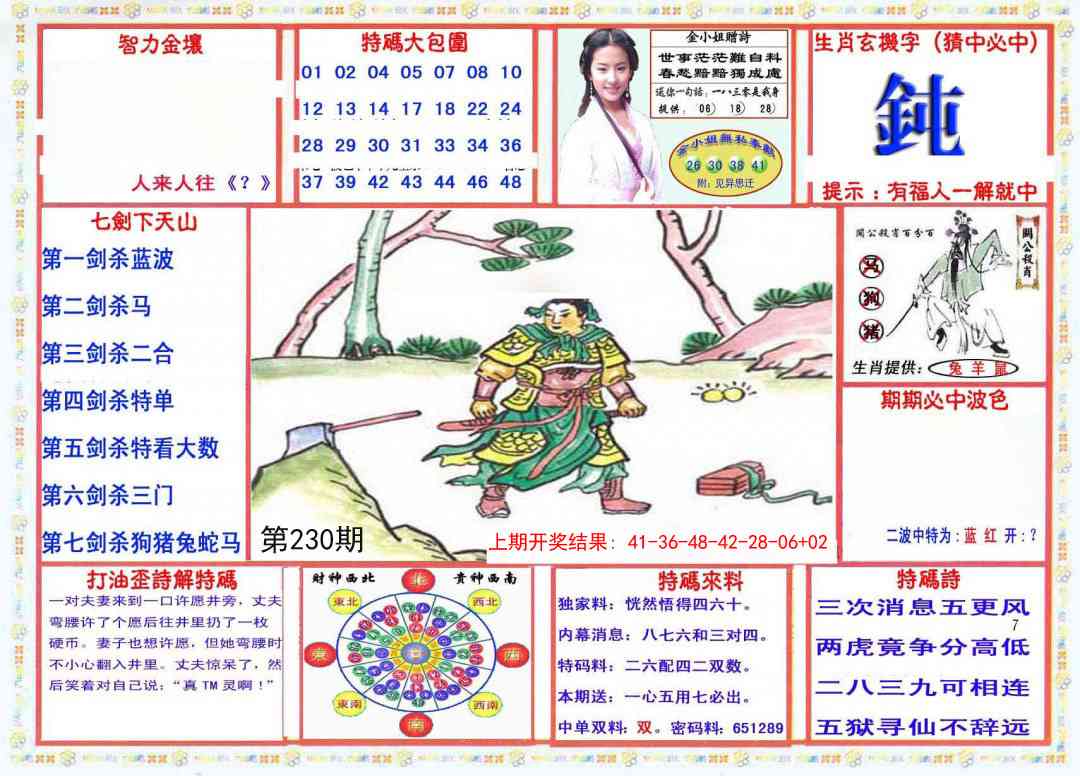 智力金壤
人来人往《？》
特碼大包圍
01 02 04 05 07 08 10
12 13 14 17 18 22 24
28 29 30 31 33 34 36
37 39 42 43 44 46 48
金小姐贈詩
世事茫茫難自料
春愁黯黯獨成處
送你一句話：一八三零是我身
提供：06） 18） 28）
金小姐無私奉獻
26 30 38 41
附：见异思迁
生肖玄機字（猜中必中）
鈍
提示：有福人一解就中
七劍下天山
第一剑杀蓝波
第二剑杀马
第三剑杀二合
第四剑杀特单
第五剑杀特看大数
第六剑杀三门
第七剑杀狗猪兔蛇马
第230期
上期开奖结果: 41-36-48-42-28-06+02
關公殺肖百分百
關公殺肖
马
狗
猪
生肖提供：兔 羊 鼠
期期必中波色
二波中特为：蓝 红 开：？
打油歪詩解特碼
一对夫妻来到一口许愿井旁，丈夫
弯腰许了个愿后往井里扔了一枚
硬币。妻子也想许愿，但她弯腰时
不小心翻入井里。丈夫惊呆了，然
后笑着对自己说：“真TM灵啊！”
财神西北
貴神西南
北
東北
西北
東
西
東南
西南
南
特碼來料
独家料：恍然悟得四六十。
内幕消息：八七六和三对四。
特码料：二六配四二双数。
本期送：一心五用七必出。
中单双料：双。密码料：651289
特碼詩
三次消息五更风
7
两虎竟争分高低
二八三九可相连
五狱寻仙不辞远